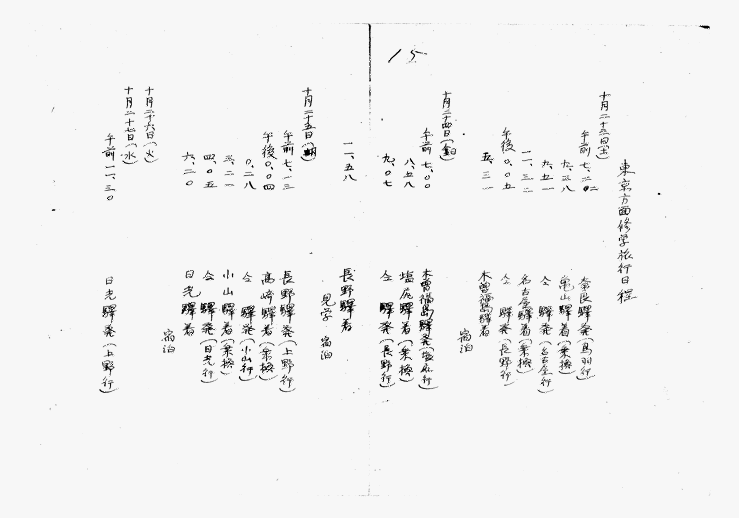 15
東京方面修学旅行日程
十月二十三日(土)
午前 七、二〇 奈良驛発(鳥羽行)
九、三八 亀山驛着(乗換)
九、五一 仝 驛発(名古屋行)
一一、三二 名古屋驛着(乗換)
午後 〇、〇五 仝 驛発(長野行)
五、三一 木曽福島驛着
宿泊
十月二十四日
午前 七、〇〇 木曽福島驛発(塩尻行)
八、五八 塩尻驛着(乗換)
九、〇七 仝 驛発(長野行)
一一、五八 長野驛着
見学 宿泊
十月二十五日
午前 七、一三 長野驛発(上野行)
午後 〇、〇四 高崎驛着(乗換)
〇、二八 仝 驛発(小山行)
三、二一 小山驛着(乗換)
四、〇五 仝 驛発(日光行)
六、二〇 日光驛着
宿泊
十月二十六日(火)
十月二十七日(水)
午前 一一、三〇 日光驛発(上野行)